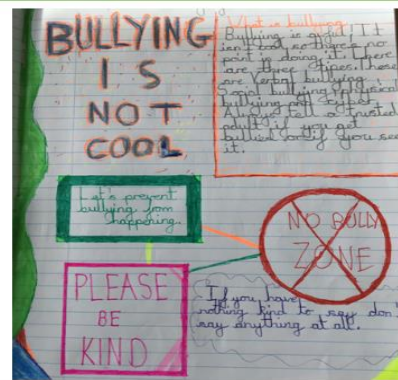 BULLYING
IS
NOT
COOL
What is bullying
Bullying is
isn't cool so there's no
point in doing it. There
are three types. These
are Verbal bullying
Social bullying Physical
bullying and
Always tell a trusted
adult if you get
bullied or if you see
it.
Let's prevent
bullying from
happening.
NO BULLY
ZONE
PLEASE
BE
KIND
If you have
nothing kind to say don'
say anything at all.